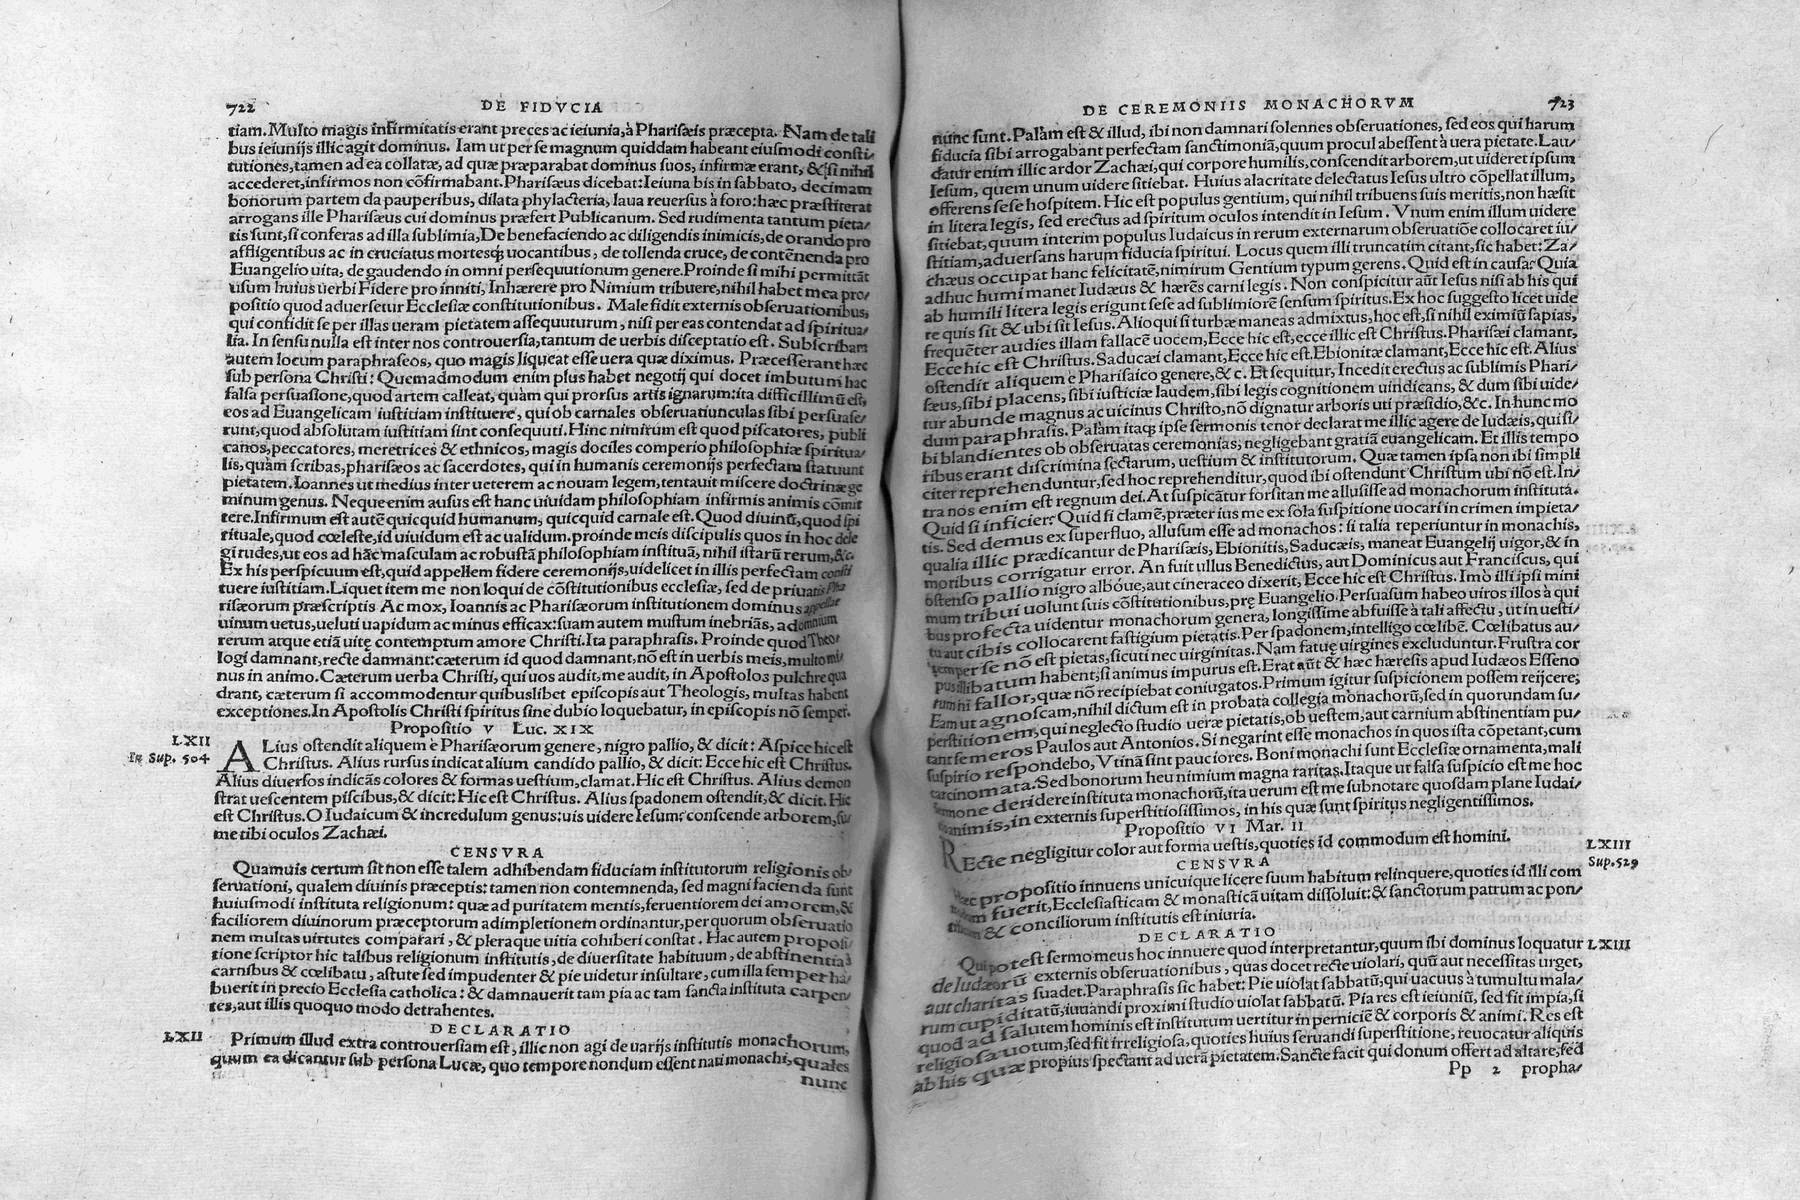 722 DE FIDVCIA
tiam. Multo magis infirmitatis erant preces ac ieiunia, à Pharisæis præcepta. Nam de tali
bus ieiunijs illic agit dominus. Iam ut per se magnum quiddam habeant eiusmodi consti/
tutiones, tamen ad ea collatæ, ad quæ præparabat dominus suos, infirmæ erant, & si nihil
accederet, infirmos non cõfirmabant. Pharisæus dicebat: Ieiuna bis in sabbato, decimam
bonorum partem da pauperibus, dilata phylacteria, laua reuersus à foro: hæc præstiterat
arrogans ille Pharisæus cui dominus præfert Publicanum. Sed rudimenta tantum pieta/
tis sunt, si conferas ad illa sublimia, De benefaciendo ac diligendis inimicis, de orando pro
affligentibus ac in cruciatus mortesq́ uocantibus, de tollenda cruce, de contẽnenda pro
Euangelio uita, de gaudendo in omni persequutionum genere. Proinde si mihi permittãt
usum huius uerbi Fidere pro inniti, Inhærere pro Nimium tribuere, nihil habet mea pro/
positio quod aduersetur Ecclesiæ constitutionibus. Male fidit externis obseruationibus,
qui confidit se per illas ueram pietatem assequuturum, nisi per eas contendat ad spiritua/
lia. In sensu nulla est inter nos controuersia, tantum de uerbis disceptatio est. Subscribam
autem locum paraphraseos, quo magis liqueat esse uera quæ diximus. Præcesserant hæc
sub persona Christi: Quemadmodum enim plus habet negotij qui docet imbutum hac
falsa persuasione, quod artem calleat, quàm qui prorsus artis ignarum: ita difficillimũ est,
eos ad Euangelicam iustitiam instituere, qui ob carnales obseruatiunculas sibi persuase/
runt, quod absolutam iustitiam sint consequuti. Hinc nimirum est quod piscatores, publi
canos, peccatores, meretrices & ethnicos, magis dociles comperio philosophiæ spiritua/
lis, quàm scribas, pharisæos ac sacerdotes, qui in humanis ceremonijs perfectam statuunt
pietatem. Ioannes ut medius inter ueterem ac nouam legem, tentauit miscere doctrinæ ge
minum genus. Neque enim ausus est hanc uiuidam philosophiam infirmis animis cõmit
tere. Infirmum est autẽ quicquid humanum, quicquid carnale est. Quod diuinũ, quod spi
rituale, quod cœleste, id uiuidum est ac ualidum. proinde meis discipulis quos in hoc dele
gi rudes, ut eos ad hãc masculam ac robustã philosophiam instituã, nihil istarũ rerum, &c.
Ex his perspicuum est, quid appellem fidere ceremonijs, uidelicet in illis perfectam consti
tuere iustitiam. Liquet item me non loqui de cõstitutionibus ecclesiæ, sed de priuatis Pha
risæorum præscriptis Ac mox, Ioannis ac Pharisæorum institutionem dominus appellat
uinum uetus, ueluti uapidum ac minus efficax: suam autem mustum inebriãs, ad omnium
rerum atque etiã uitę contemptum amore Christi. Ita paraphrasis. Proinde quod Theo/
logi damnant, recte damnant: cæterum id quod damnant, nõ est in uerbis meis, multo mi/
nus in animo. Cæterum uerba Christi, qui uos audit, me audit, in Apostolos pulchre qua
drant, cæterum si accommodentur quibuslibet episcopis aut Theologis, multas habent
exceptiones. In Apostolis Christi spiritus sine dubio loquebatur, in episcopis nõ semper.
Propositio V Luc. XIX
LXII
In Sup. 504
ALius ostendit aliquem è Pharisæorum genere, nigro pallio, & dicit: Aspice hic est
Christus. Alius rursus indicat alium candido pallio, & dicit: Ecce hic est Christus.
Alius diuersos indicãs colores & formas uestium, clamat. Hic est Christus. Alius demon
strat uescentem piscibus, & dicit: Hic est Christus. Alius spadonem ostendit, & dicit. Hic
est Christus. O Iudaicum & incredulum genus: uis uidere Iesum: conscende arborem, su/
me tibi oculos Zachæi.
CENSVRA
Quamuis certum sit non esse talem adhibendam fiduciam institutorum religionis ob/
seruationi, qualem diuinis præceptis: tamen non contemnenda, sed magni facienda sunt
huiusmodi instituta religionum: quæ ad puritatem mentis, feruentiorem dei amorem, &
faciliorem diuinorum præceptorum adimpletionem ordinantur, per quorum obseruatio
nem multas uirtutes comparari, & pleraque uitia cohiberi constat. Hac autem proposi/
tione scriptor hic talibus religionum institutis, de diuersitate habituum, de abstinentia à
carnibus & cœlibatu, astute sed impudenter & pie uidetur insultare, cum illa semper ha/
buerit in precio Ecclesia catholica: & damnauerit tam pia ac tam sancta instituta carpen/
tes, aut illis quoquo modo detrahentes.
DECLARATIO
LXII Primum illud extra controuersiam est, illic non agi de uarijs institutis monachorum,
quum ea dicantur sub persona Lucæ, quo tempore nondum essent nati monachi, quales
nunc
DE CEREMONIIS MONACHORVM 723
nunc sunt. Palàm est & illud, ibi non damnari solennes obseruationes, sed eos qui harum
fiducia sibi arrogabant perfectam sanctimoniã, quum procul abessent à uera pietate. Lau/
datur enim illic ardor Zachæi, qui corpore humilis, conscendit arborem, ut uideret ipsum
Iesum, quem unum uidere sitiebat. Huius alacritate delectatus Iesus ultro cõpellat illum,
offerens sese hospitem. Hic est populus gentium, qui nihil tribuens suis meritis, non hæsit
in litera legis, sed erectus ad spiritum oculos intendit in Iesum. Vnum enim illum uidere
sitiebat, quum interim populus Iudaicus in rerum externarum obseruatiõe collocaret iu/
stitiam, aduersans harum fiducia spiritui. Locus quem illi truncatim citant, sic habet: Za/
chæus occupat hanc felicitatẽ, nimirum Gentium typum gerens. Quid est in causa? Quia
adhuc humi manet Iudæus & hærẽs carni legis. Non conspicitur aũt Iesus nisi ab his qui
ab humili litera legis erigunt sese ad sublimiorẽ sensum spiritus. Ex hoc suggesto licet uide
re quis sit & ubi sit Iesus. Alioqui si turbæ maneas admixtus, hoc est, si nihil eximiũ sapias,
frequẽter audies illam fallacẽ uocem, Ecce hic est, ecce illic est Christus. Pharisæi clamant,
Ecce hic est Christus. Saducæi clamant, Ecce hic est. Ebionitæ clamant, Ecce hic est. Alius
ostendit aliquem è Pharisaico genere, &c. Et sequitur, Incedit erectus ac sublimis Phari/
sæus, sibi placens, sibi iusticiæ laudem, sibi legis cognitionem uindicans, & dum sibi uide/
tur abunde magnus ac uicinus Christo, nõ dignatur arboris uti præsidio, &c. In hunc mo
dum paraphrasis. Palàm itaq; ipse sermonis tenor declarat me illic agere de Iudæis, qui si/
bi blandientes ob obseruatas ceremonias, negligebant gratiã euangelicam. Et illis tempo
ribus erant discrimina sectarum, uestium & institutorum. Quæ tamen ipsa non ibi simpli
citer reprehenduntur, sed hoc reprehenditur, quod ibi ostendunt Christum ubi nõ est. In/
tra nos enim est regnum dei. At suspicãtur forsitan me allusisse ad monachorum instituta.
Quid si inficier? Quid si clamẽ, præter ius me ex sola suspitione uocari in crimen impieta/
tis. Sed demus ex superfluo, allusum esse ad monachos: si talia reperiuntur in monachis,
qualia illic prædicantur de Pharisæis, Ebionitis, Saducæis, maneat Euangelij uigor, & in
moribus corrigatur error. An fuit ullus Benedictus, aut Dominicus aut Franciscus, qui
ostenso pallio nigro albóue, aut cineraceo dixerit, Ecce hic est Christus. Imò illi ipsi mini
mum tribui uolunt suis cõstitutionibus, prę Euangelio. Persuasum habeo uiros illos à qui
bus profecta uidentur monachorum genera, longissime abfuisse à tali affectu, ut in uesti/
tu aut cibis collocarent fastigium pietatis. Per spadonem, intelligo cœlibẽ. Cœlibatus au/
tem per se nõ est pietas, sicuti nec uirginitas. Nam fatuę uirgines excluduntur. Frustra cor
pus illibatum habent, si animus impurus est. Erat aũt & hæc hæresis apud Iudæos Esseno
rum ni fallor, quæ nõ recipiebat coniugatos. Primum igitur suspicionem possem reijcere,
Eam ut agnoscam, nihil dictum est in probata collegia monachorũ, sed in quorundam su/
perstitionem, qui neglecto studio ueræ pietatis, ob uestem, aut carnium abstinentiam pu/
tant semeros Paulos aut Antonios. Si negarint esse monachos in quos ista cõpetant, cum
suspirio respondebo, Vtinã sint pauciores. Boni monachi sunt Ecclesiæ ornamenta, mali
carcinomata. Sed bonorum heu nimium magna raritas. Itaque ut falsa suspicio est me hoc
sermone deridere instituta monachorũ, ita uerum est me subnotare quosdam plane Iudai/
cis animis, in externis superstitiosissimos, in his quæ sunt spiritus negligentissimos.
Propositio VI Mar. II
REcte negligitur color aut forma uestis, quoties id commodum est homini. LXIII
Sup. 529
CENSVRA
Hæc propositio innuens unicuique licere suum habitum relinquere, quoties id illi com
modum fuerit, Ecclesiasticam & monasticã uitam dissoluit: & sanctorum patrum ac pon/
tificum & conciliorum institutis est iniuria.
DECLARATIO
Qui potest sermo meus hoc innuere quod interpretantur, quum ibi dominus loquatur LXIII
de Iudæorũ externis obseruationibus, quas docet recte uiolari, quũ aut necessitas urget,
aut charitas suadet. Paraphrasis sic habet: Pie uiolat sabbatũ, qui uacuus à tumultu mala/
rum cupiditatũ, iuuandi proximi studio uiolat sabbatũ. Pia res est ieiuniũ, sed fit impia, si
quod ad salutem hominis est institutum uertitur in perniciẽ & corporis & animi. Res est
religiosa uotum, sed fit irreligiosa, quoties huius seruandi superstitione, reuocatur aliquis
ab his quæ propius spectant ad uerã pietatem. Sancte facit qui donum offert ad altare, sed
Pp 2 propha/